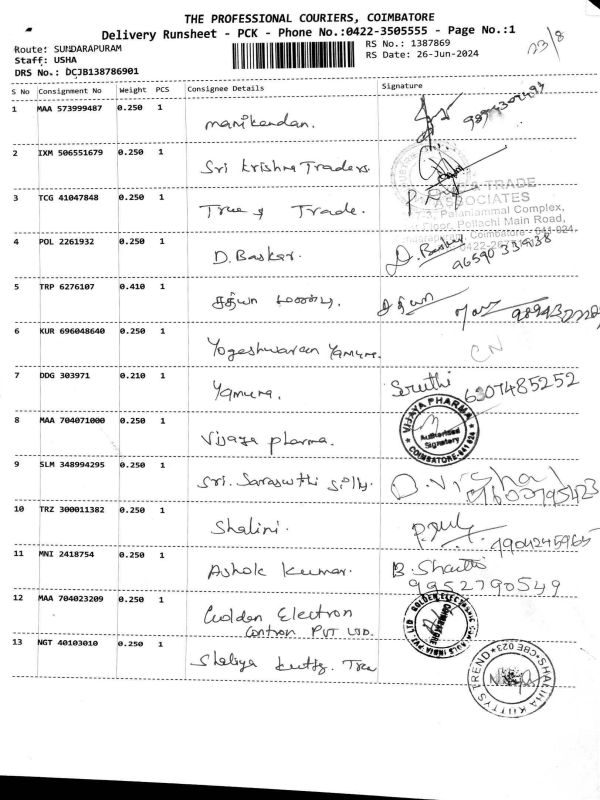 THE PROFESSIONAL COURIERS, COIMBATORE
Delivery Runsheet - PCK - Phone No.:0422-3505555 - Page No.:1
Route: SUNDARAPURAM
RS No.: 1387869
23/8
Staff: USHA
RS Date: 26-Jun-2024
DRS No.: DCJB138786901
S No Consignment No Weight PCS Consignee Details Signature
1 MAA 573999487 0.250 1 manikandan.
2 IXM 506551679 0.250 1 Sri Krishna Traders
3 TCG 41047848 0.250 1 True & Trade.
TRADE
ASSOCIATES
Palaniammal Complex,
Pollachi Main Road,
Coimbatore - 641 024.
4 POL 2261932 0.250 1 D. Baskar. D. Baskar
5 TRP 6276107 0.410 1 சத்யா
6 KUR 696048640 0.250 1 Yogeshwaran Yamuna. CN
7 DDG 303971 0.210 1 Yamuna. Sruthi 6307485252
8 MAA 704071000 0.250 1 Vijaya pharma.
VIJAYA PHARMA
Authorised
Signatory
COIMBATORE-641 024
9 SLM 348994295 0.250 1 Sri. Saraswthi Silks.
10 TRZ 300011382 0.250 1 Shalini.
11 MNI 2418754 0.250 1 Ashok Kumar. B.
9952790549
12 MAA 704023209 0.250 1 Golden Electron
Contron PVT LTD.
13 NGT 40103010 0.250 1
SHALINA KUTTYS TREND CBE 023